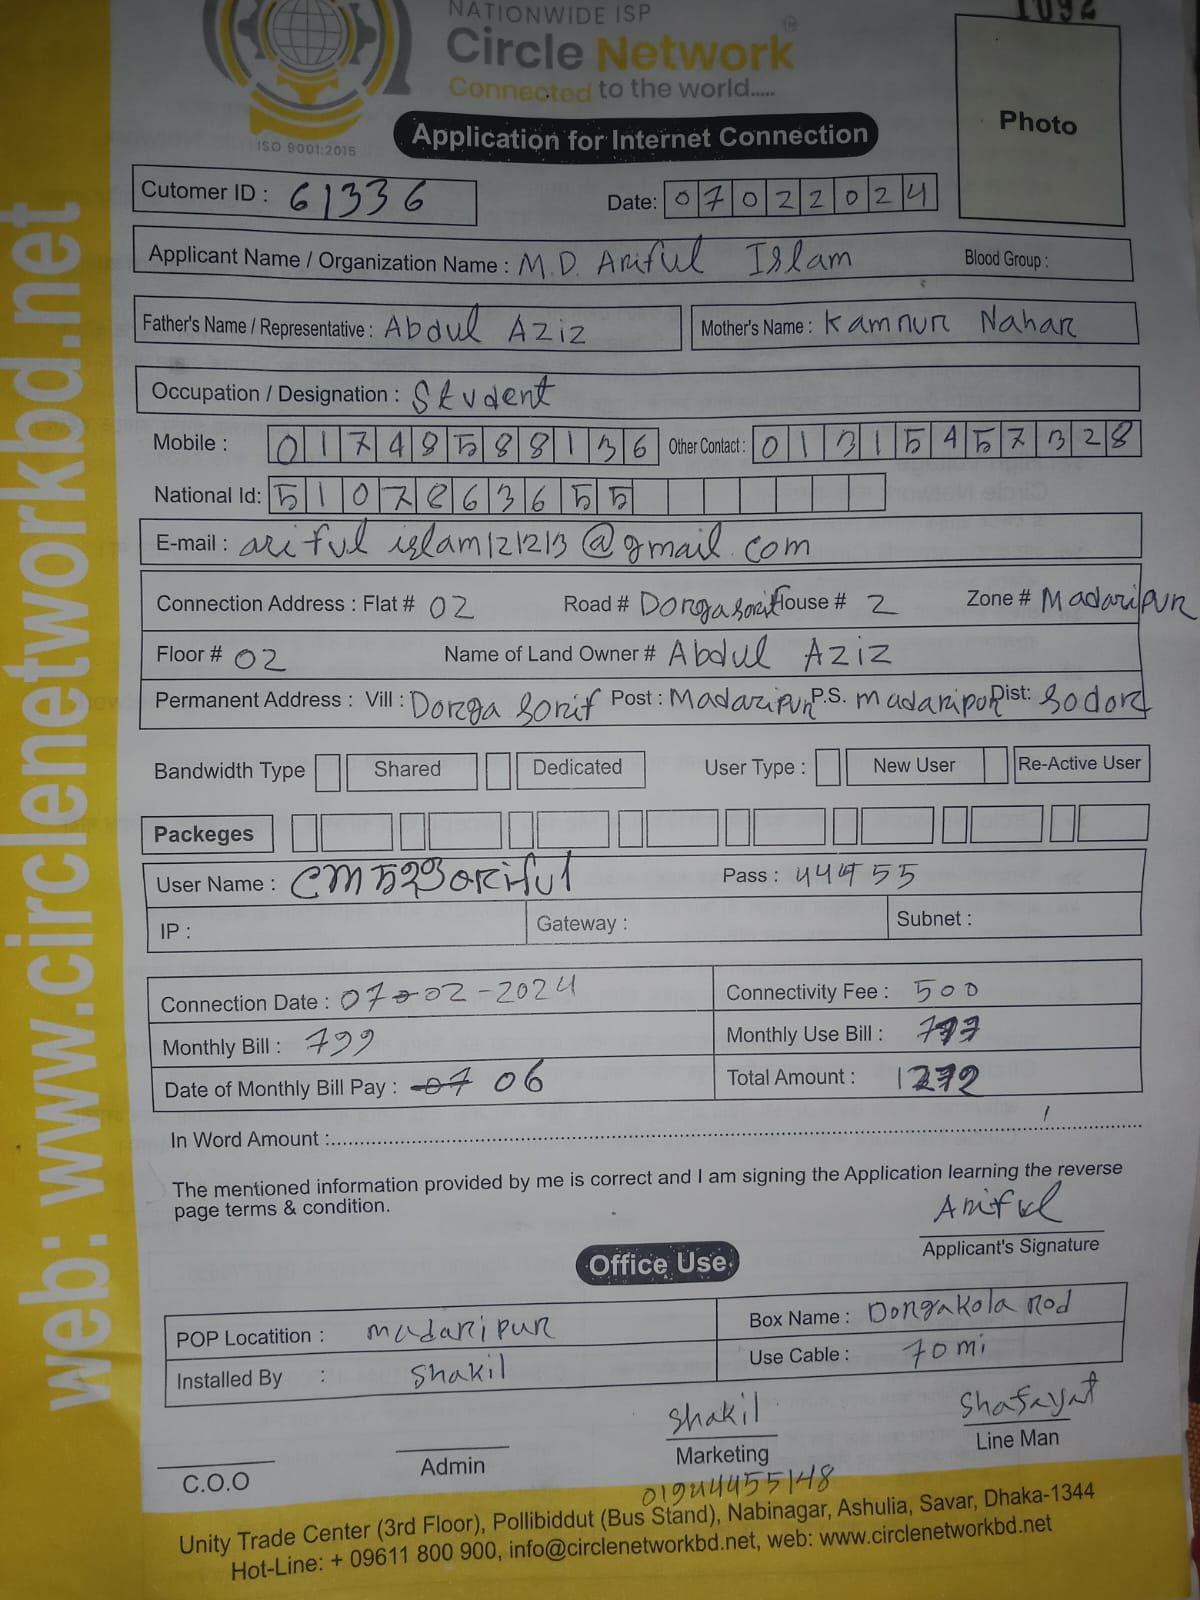 1092
NATIONWIDE ISP
Circle Network
Connected to the world.....
ISO 9001:2015
Application for Internet Connection
Photo
Cutomer ID : 61336 Date: 07022024
Applicant Name / Organization Name : M.D. Ariful Islam Blood Group :
Father's Name / Representative : Abdul Aziz Mother's Name : Kamnur Nahar
Occupation / Designation : Student
Mobile : 01748588136 Other Contact : 01315457328
National Id: 5107863655
E-mail : ariful islam121213@gmail.com
Connection Address : Flat # 02 Road # Dorgasorif House # 2 Zone # Madaripur
Floor # 02 Name of Land Owner # Abdul Aziz
Permanent Address : Vill : Dorga Sorif Post : Madaripur P.S. madaripur Dist: Sodor
Bandwidth Type Shared Dedicated User Type : New User Re-Active User
Packeges
User Name : Pass : 444555
IP : Gateway : Subnet :
Connection Date : 07-02-2024 Connectivity Fee : 500
Monthly Bill : 799 Monthly Use Bill :
Date of Monthly Bill Pay : 07 06 Total Amount :
In Word Amount :
The mentioned information provided by me is correct and I am signing the Application learning the reverse
page terms & condition.
Ariful
Applicant's Signature
Office Use
POP Locatition : madaripur Box Name : Dorgakola rod
Installed By : Shakil Use Cable : 70 mi
Shakil Shafayat
C.O.O Admin Marketing Line Man
01944455148
Unity Trade Center (3rd Floor), Pollibiddut (Bus Stand), Nabinagar, Ashulia, Savar, Dhaka-1344
Hot-Line: + 09611 800 900, info@circlenetworkbd.net, web: www.circlenetworkbd.net
web: www.circlenetworkbd.net